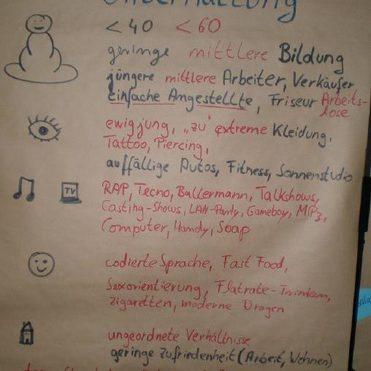 Unterhaltung
< 40 < 60
geringe mittlere Bildung
jüngere mittlere Arbeiter, Verkäufer
einfache Angestellte, Friseur Arbeits-
lose
ewig jung, „zu" extreme Kleidung,
Tattoo, Piercing,
auffällige Autos, Fitness, Sonnenstudio
TV
RAP, Tecno, Ballermann, Talkshows,
Casting-Shows, LAN-Party, Gameboy, MP3,
Computer, Handy, Soap
codierte Sprache, Fast Food,
Sexorientierung, Flatrate-Trinken,
Zigaretten, moderne Drogen
ungeordnete Verhältnisse
geringe Zufriedenheit (Arbeit, Wohnen)